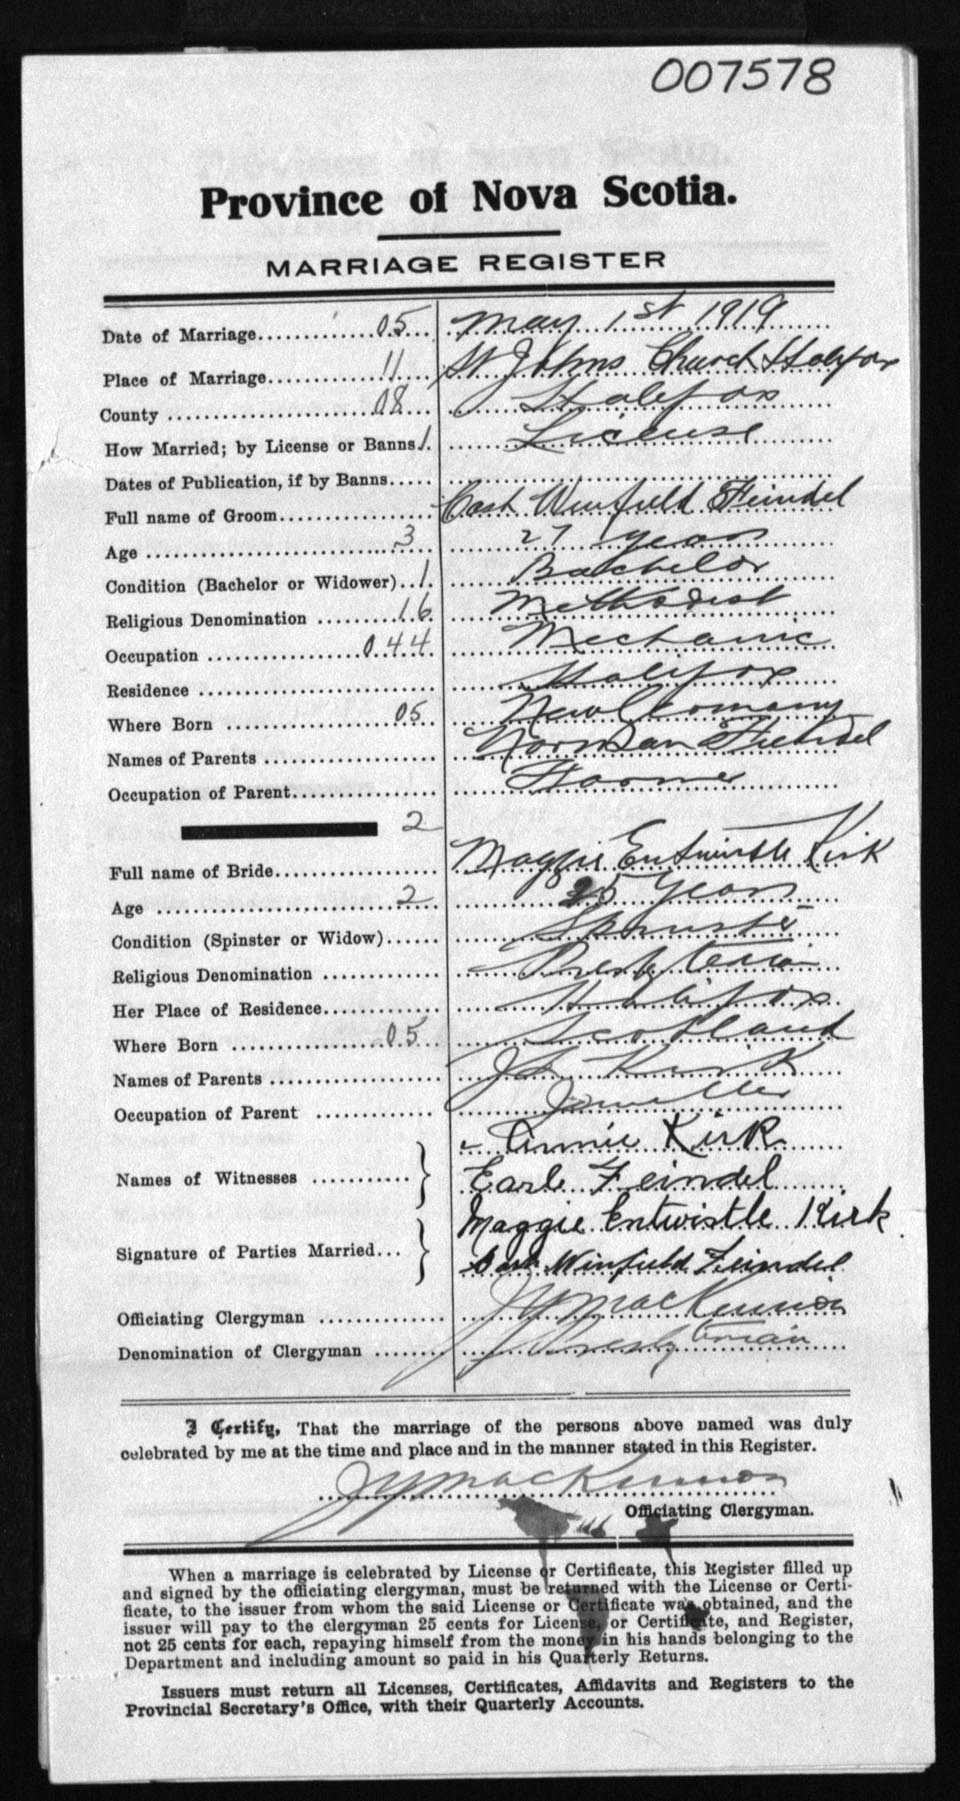 007578
Province of Nova Scotia.
MARRIAGE REGISTER
Date of Marriage 05 May 1st, 1919
Place of Marriage 11 St Johns Church Halifax
County 08 Halifax
How Married; by License or Banns 1. License
Dates of Publication, if by Banns
Full name of Groom Cash Winfield Feindel
Age 3 27 years
Condition (Bachelor or Widower) 1. Bachelor
Religious Denomination 16 Methodist
Occupation 044 Mechanic
Residence Halifax
Where Born 05 New Germany
Names of Parents Norman Feindel
Occupation of Parent Farmer
2
Full name of Bride Maggie Entwistle Kirk
Age 2 25 Years
Condition (Spinster or Widow) Spinster
Religious Denomination Presbyterian
Her Place of Residence Halifax
Where Born 05 Scotland
Names of Parents Kirk
Occupation of Parent
Names of Witnesses Annie Kirk
Earle Feindel
Signature of Parties Married Maggie Entwistle Kirk
Cash Winfield Feindel
Officiating Clergyman MacKinnon
Denomination of Clergyman Presbyterian
I Certify, That the marriage of the persons above named was duly
celebrated by me at the time and place and in the manner stated in this Register.
MacKinnon
Officiating Clergyman.
When a marriage is celebrated by License or Certificate, this Register filled up
and signed by the officiating clergyman, must be returned with the License or Certi-
ficate, to the issuer from whom the said License or Certificate was obtained, and the
issuer will pay to the clergyman 25 cents for License, or Certificate, and Register,
not 25 cents for each, repaying himself from the money in his hands belonging to the
Department and including amount so paid in his Quarterly Returns.
Issuers must return all Licenses, Certificates, Affidavits and Registers to the
Provincial Secretary's Office, with their Quarterly Accounts.